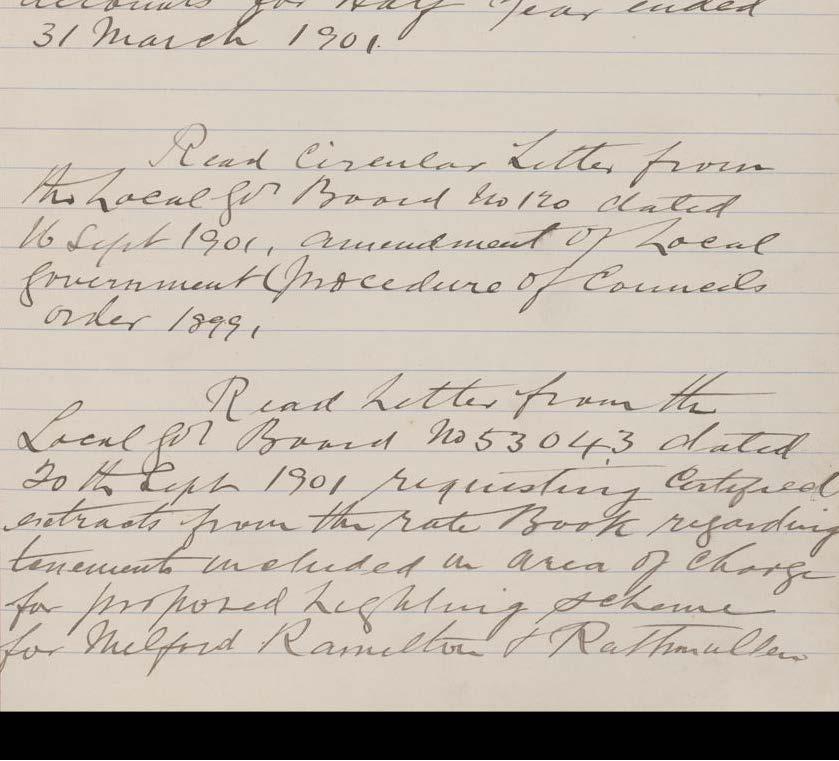 accounts for Half Year ended
31 March 1901.
Read Circular Letter from
the Local Govt Board No 120 dated
16 Sept 1901, amendment of Local
Government (Procedure of Councils
order 1899,
Read Letter from the
Local Govt Board No 53043 dated
20th Sept 1901 requesting Certified
extracts from the rate Book regarding
tenements included in area of Charge
for proposed Lighting scheme
for Milford Ramelton & Rathmullen